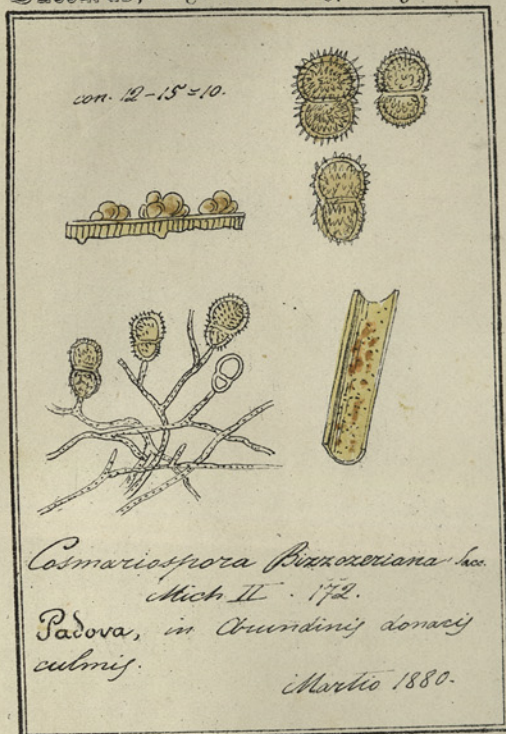 con. 12-15=10.
Cosmariospora Bizzozeriana Sacc.
Mich II . 172.
Padova, in Arundinis donacis
culmis.
Martio 1880.